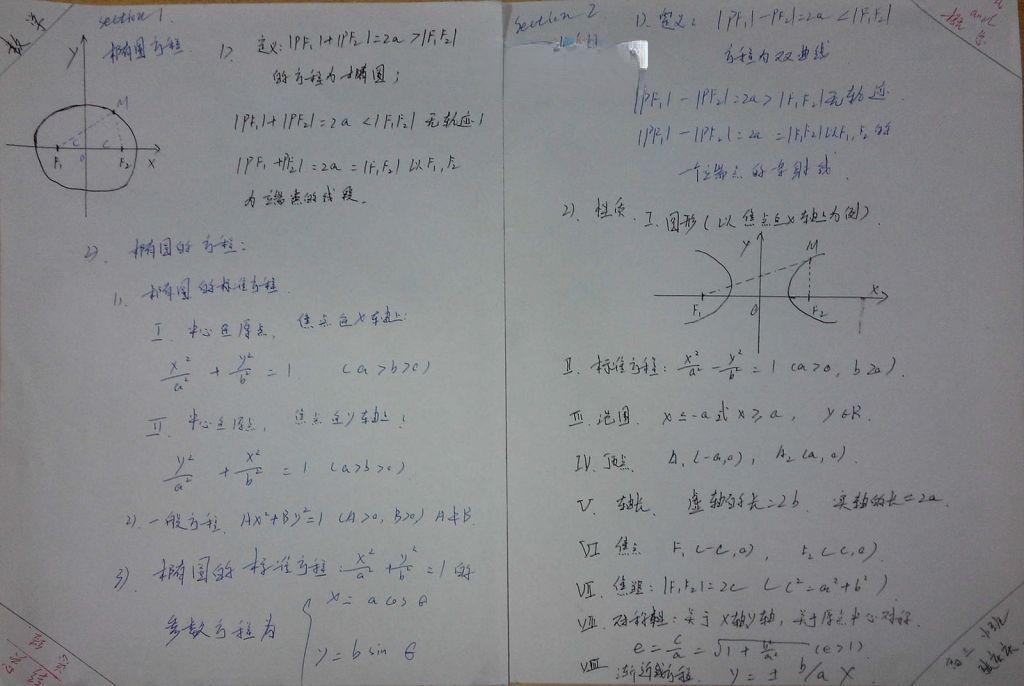 数学
section 1.
椭有圆方程
1) 定义: |PF₁|+|PF₂|=2a>|F₁F₂|
的方程为椭圆;
|PF₁|+|PF₂|=2a<|F₁F₂| 无轨迹!
|PF₁+PF₂|=2a=|F₁F₂| 以F₁,F₂
为端点的线段.
y
M
c
c
F₁
0
F₂
x
2). 椭有圆的方程:
1). 椭有圆的标准方程.
I. 中心在原点, 焦点在x轴上:
x²/a² + y²/b² = 1 (a>b>0)
II. 中心在原点, 焦点在y轴上:
y²/a² + x²/b² = 1 (a>b>0)
2) 一般方程. Ax²+By²=1 (A>0, B>0) A≠B.
3) 椭有圆的标准方程: x²/a² + y²/b² = 1 的
参数方程为
x = a cos θ
y = b sin θ
section 2
1). 定义: |PF₁|-|PF₂|=2a<|F₁F₂|
方程为双曲线
|PF₁|-|PF₂|=2a>|F₁F₂|无轨迹.
|PF₁|-|PF₂|=2a=|F₁F₂|以F₁,F₂的
一个端点的射线.
2). 性质. I. 图形(以焦点在x轴上为例)
y
M
F₁
0
F₂
x
II. 标准方程: x²/a² - y²/b² = 1 (a>0, b>0).
III. 范围. x≤-a或x≥a, y∈R.
IV. 顶点. A₁(-a,0), A₂(a,0).
V. 轴长. 虚轴的长=2b. 实轴的长=2a.
VI 焦点 F₁(-c,0), F₂(c,0)
VII. 焦距: |F₁F₂|=2c (c²=a²+b²)
VIII. 对称轴: 关于x轴y轴, 关于原点中心对称.
e = c/a = √1+b²/a² (e>1)
VIII 渐近线方程. y = ± b/a x